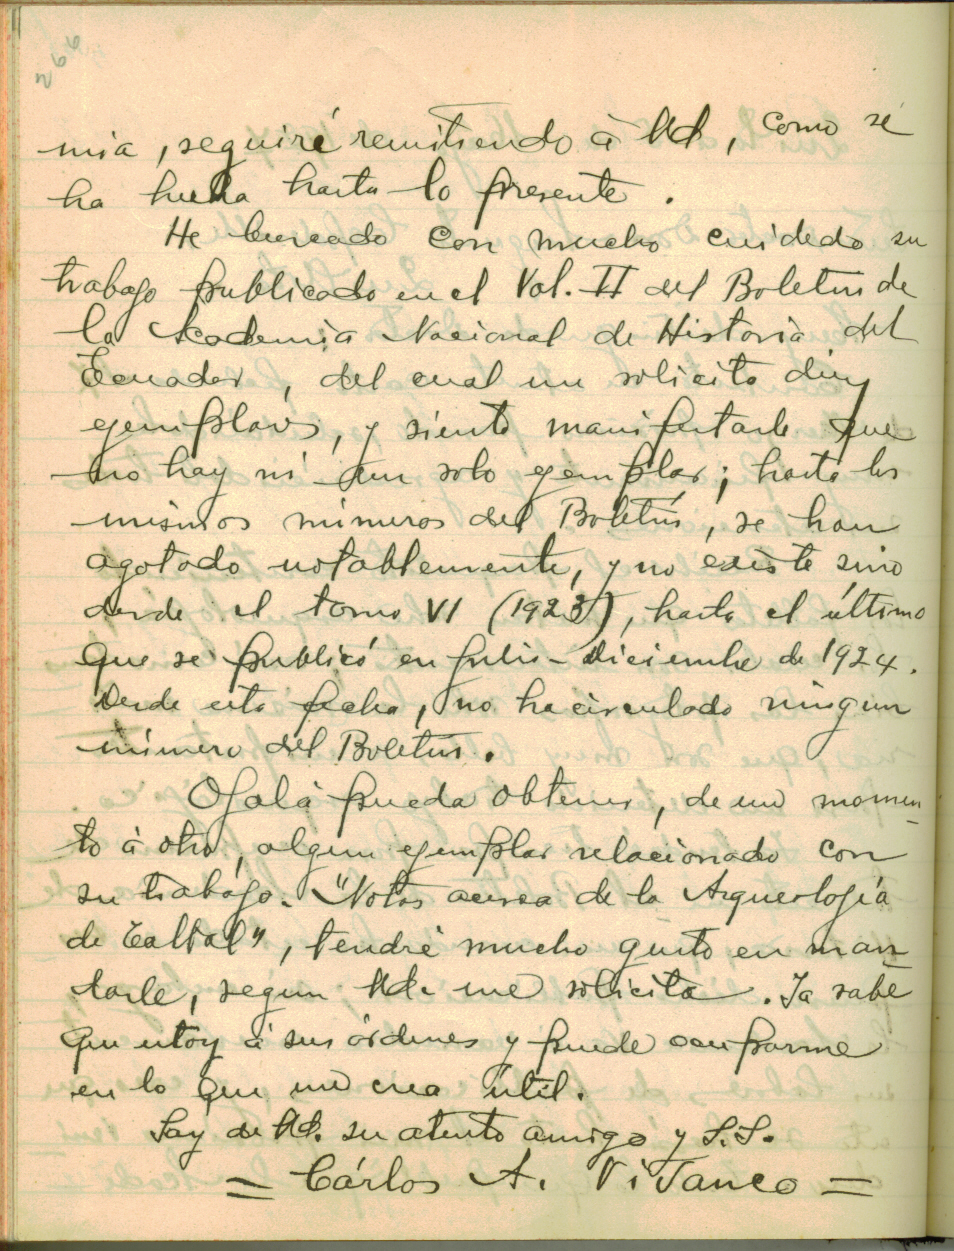 266
mia, seguiré remitiendo à Ud, como se
ha hecho hasta lo presente.
He buscado con mucho cuidado su
trabajo publicado en el Vol. II del Boletin de
la Academia Nacional de Historia del
Ecuador, del cual me solicita diez
ejemplares, y siento manifestarle que
no hay ni un solo ejemplar; hasta los
mismos números del Boletín, se han
agotado notablemente, y no existe sino
desde el tomo VI (1923), hasta el último
que se publicó en Julio-Diciembre de 1924.
Desde esta fecha, no ha circulado ningun
número del Boletin.
Ojalá pueda obtener, de un momen
to á otro, algun ejemplar relacionado con
su trabájo. "Notas acerca de la Arqueología
de Taltal", tendré mucho gusto en man
darle, segun Ud. me solicita. Ya sabe
que estóy á sus órdenes y puede ocuparme
en lo que me crea útil.
Soy de Ud. su atento amigo y S.S.
= Cárlos A. Vivanco =